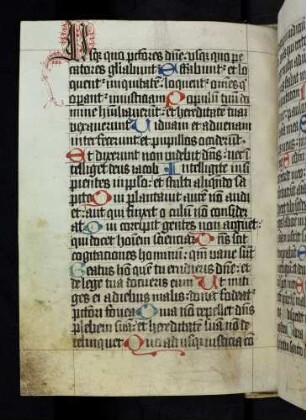 Usq; quo pctores dne: usq; quo pe
catores gliabunt Effabunt: et lo
quent iniquitate: loquent omes q
opant iniusticiam Populum tuu do
mine huiliauerunt: et hereditate tua
uexauerunt Uiduam et aduenam
interfecerunt: et pupillos occiderunt
Et dixerunt non uidebit dns: nec i
telliget deus iacob Intelligite insi
pientes in pplo: et stulti aliqndo sa
pite Qui plantauit aure no audi
et: aut qui finxit oculu no consider
at Qui corripit gentes non arguet:
qui docet hoiem scienciam Dns scit
cogitationes hominu: qm uane sut
Beatus ho que tu erudieris dne: et
de lege tua docueris eum Ut miti
ges ei a diebus malis: donec fodeat
pctori fouea Quia no repellet dns
plebem sua: et hereditate sua no de
relinquet Quoadusq; iusticia co